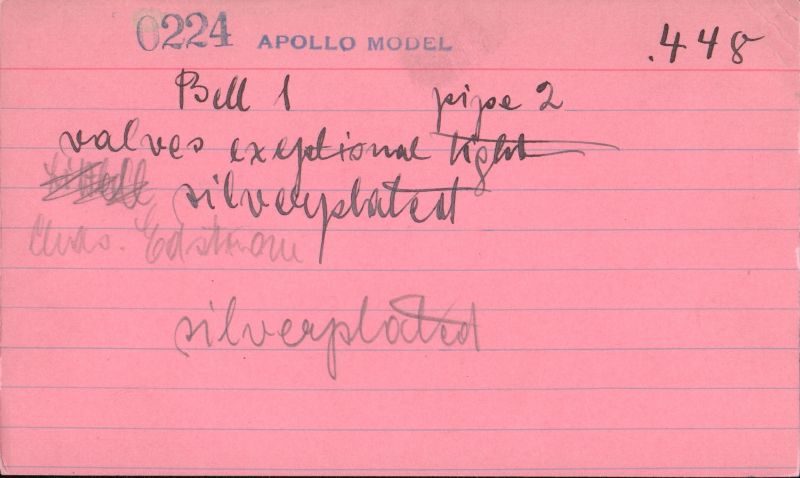 0224 APOLLO MODEL .448
Bell 1 pipe 2
valves exeptional tight
silverplated
Chas. Eastman
silverplated